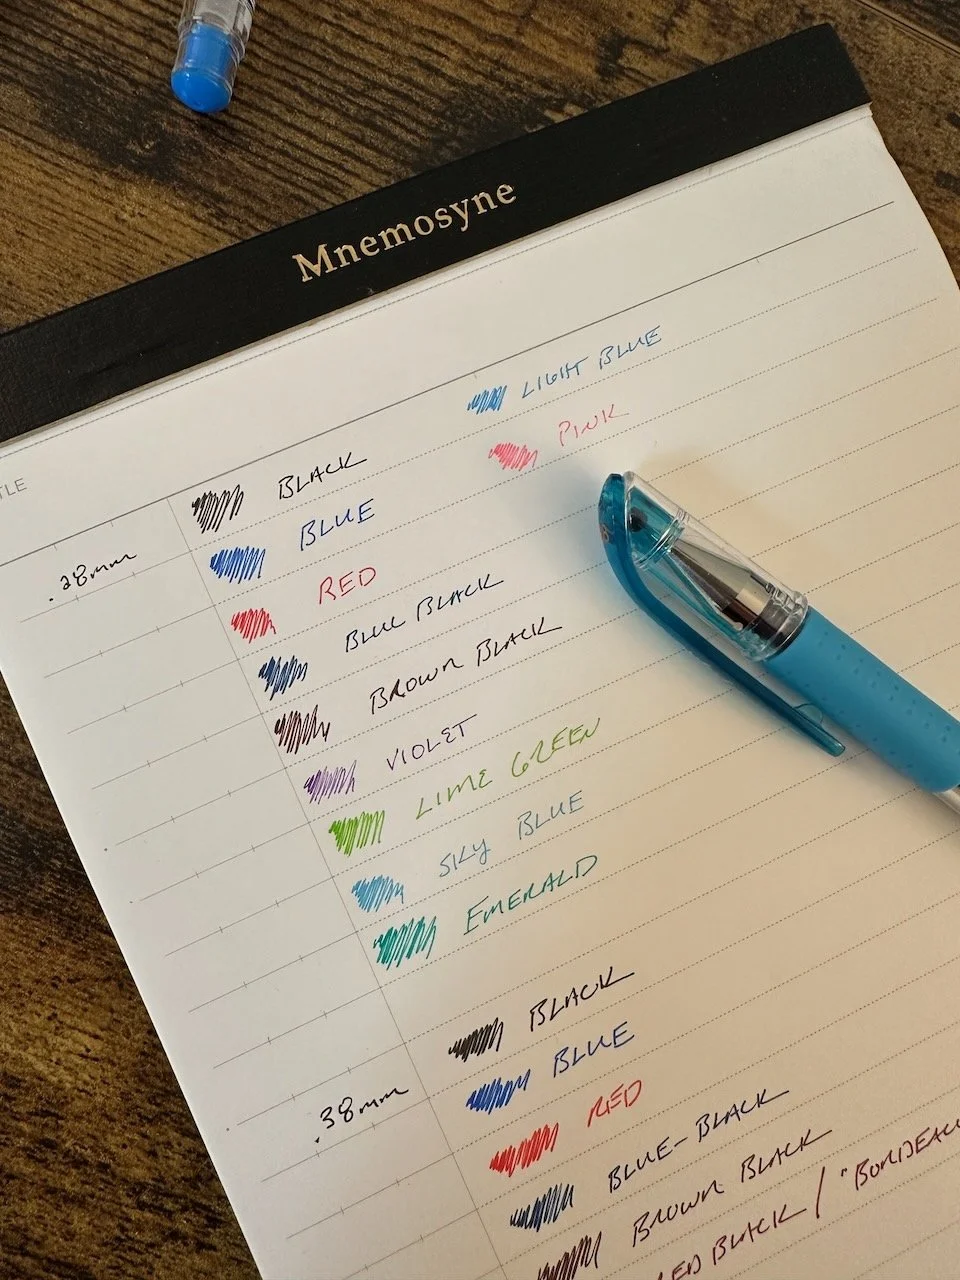 Mnemosyne
TLE
LIGHT BLUE
PINK
.28mm
BLACK
BLUE
RED
BLUE BLACK
BROWN BLACK
VIOLET
LIME GREEN
SKY BLUE
EMERALD
.38mm
BLACK
BLUE
RED
BLUE-BLACK
BROWN BLACK
ED BLACK / "BORDEAU